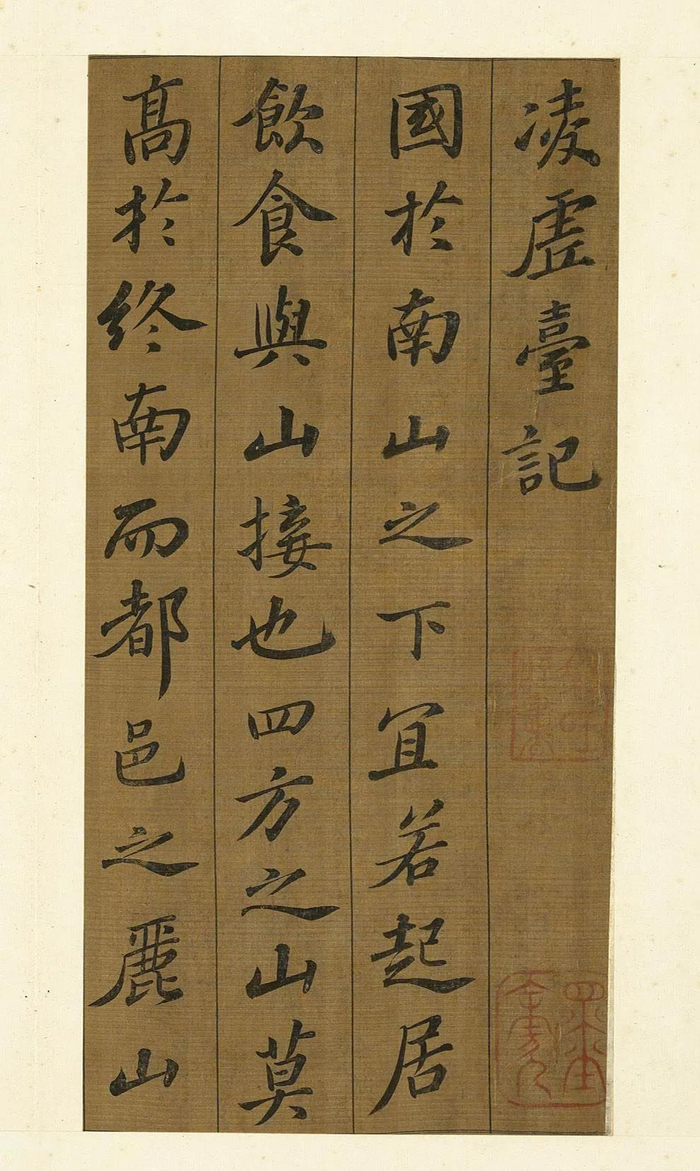 凌虛臺記
國於南山之下冝若起居
飲食與山接也四方之山莫
髙於終南而都邑之麗山